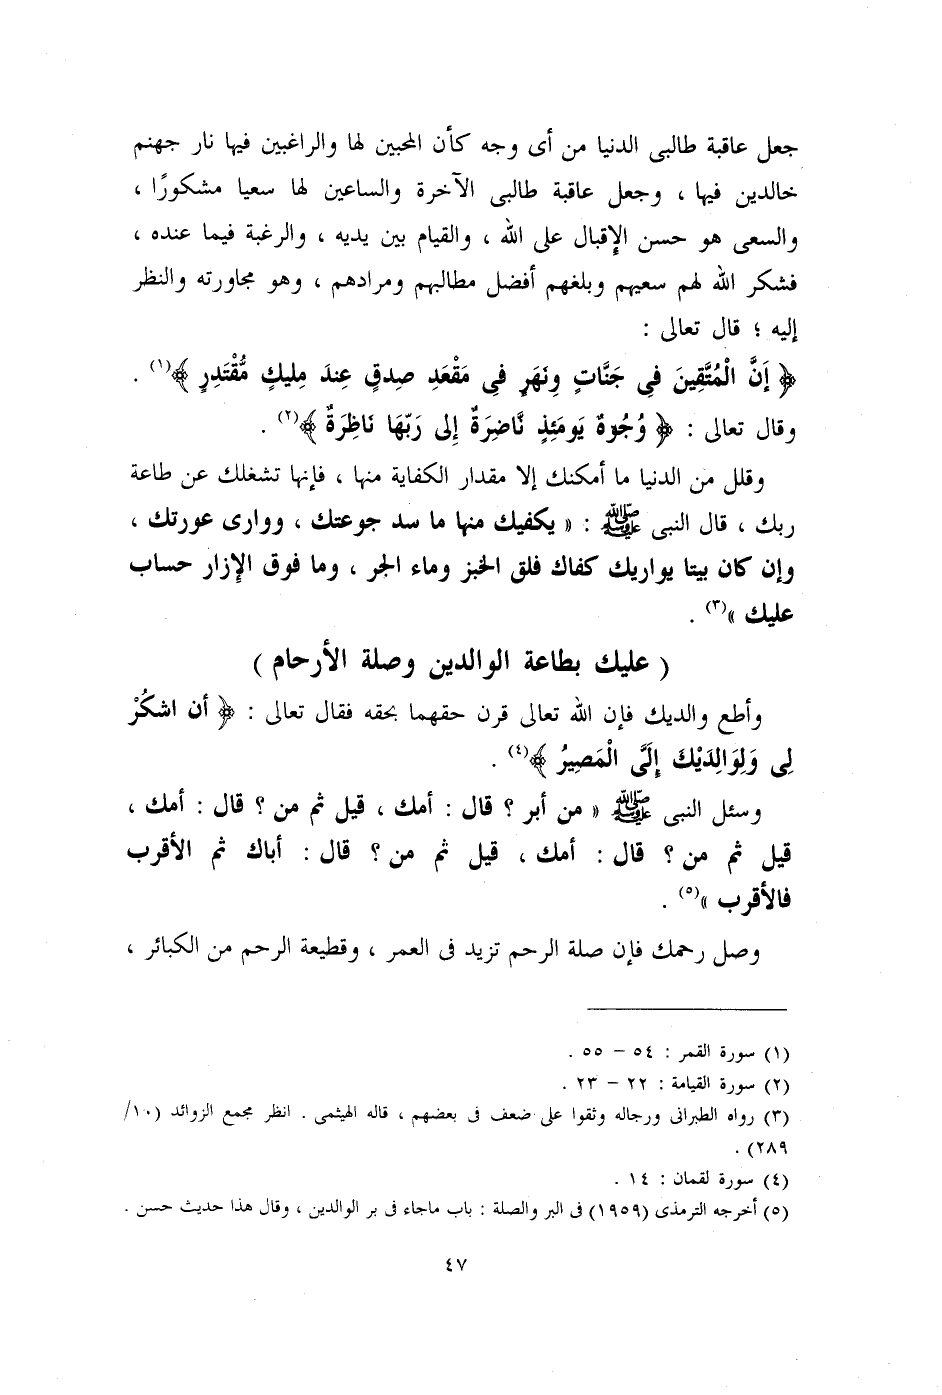 جعل عاقبة طالبى الدنيا من أى وجه كأن المحبين لها والراغبين فيها نار جهنم
خالدين فيها ، وجعل عاقبة طالبى الآخرة والساعين لها سعيا مشكورًا ،
والسعى هو حسن الإقبال على الله ، والقيام بين يديه ، والرغبة فيما عنده ،
فشكر الله لهم سعيهم وبلغهم أفضل مطالبهم ومرادهم ، وهو مجاورته والنظر
إليه ؛ قال تعالى :
﴿ إَنَّ الْمُتَّقِينَ فِي جَنَّاتٍ وِنَهَرٍ فِي مَقْعَدِ صِدقٍ عِندَ مِليكٍ مُّقْتَدِرٍ ﴾(١) .
وقال تعالى : ﴿ وُجُوهٌ يَومَئِذٍ نَّاضِرَةٌ إِلى رَبِّهَا نَاظِرَةٌ ﴾(٢) .
وقلل من الدنيا ما أمكنك إلا مقدار الكفاية منها ، فإنها تشغلك عن طاعة
ربك ، قال النبى ﷺ : « يكفيك منها ما سد جوعتك ، ووارى عورتك ،
وإن كان بيتا يواريك كفاك فلق الخبز وماء الجر ، وما فوق الإزار حساب
عليك »(٣) .
( عليك بطاعة الوالدين وصلة الأرحام )
وأطع والديك فإن الله تعالى قرن حقهما بحقه فقال تعالى : ﴿ أن اشكُرْ
لِى وَلِوَالِدَيْكَ إِلَىَّ الْمَصِيرُ ﴾(٤) .
وسئل النبى ﷺ « من أبر ؟ قال : أمك ، قيل ثم من ؟ قال : أمك ،
قيل ثم من ؟ قال : أمك ، قيل ثم من ؟ قال : أباك ثم الأقرب
فالأقرب »(٥) .
وصل رحمك فإن صلة الرحم تزيد فى العمر ، وقطيعة الرحم من الكبائر ،
(١) سورة القمر : ٥٤ – ٥٥ .
(٢) سورة القيامة : ٢٢ – ٢٣ .
(٣) رواه الطبرانى ورجاله وثقوا على ضعف فى بعضهم ، قاله الهيثمى . انظر مجمع الزوائد (١٠/
٢٨٩) .
(٤) سورة لقمان : ١٤ .
(٥) أخرجه الترمذى (١٩٥٩) فى البر والصلة : باب ماجاء فى بر الوالدين ، وقال هذا حديث حسن .
٤٧